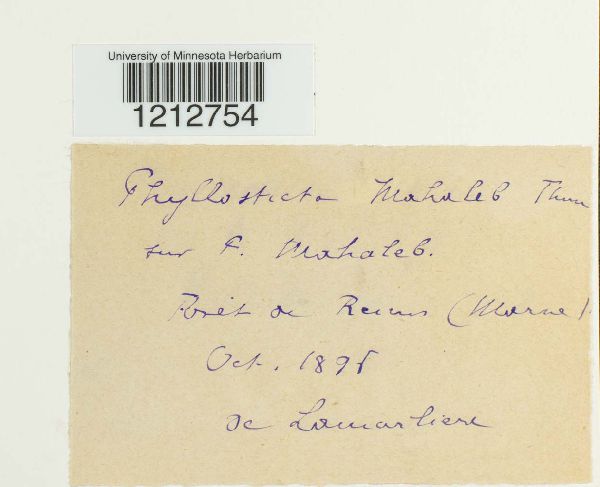 University of Minnesota Herbarium
1212754
Phyllosticta Mahaleb Thum
sur P. Mahaleb.
Forêt de Reims (Marne).
Oct. 1895
de Lamarliere